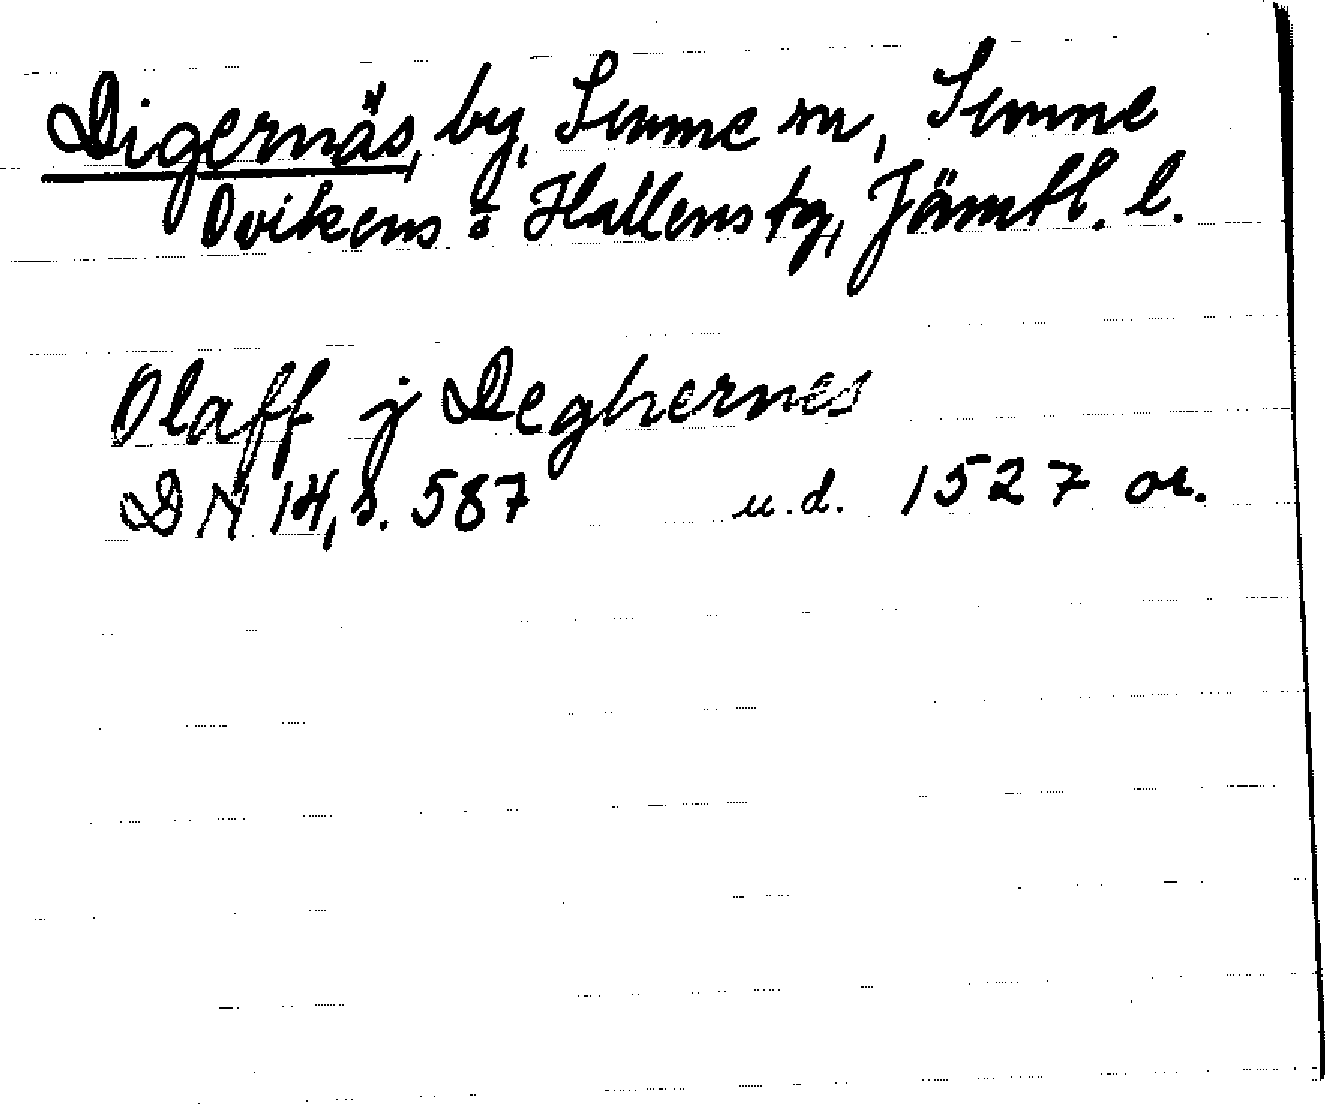 Digernäs, by, Sunne sn, Sunne
Ovikens o Hallens tg, Jämtl. l.
Olaff j Deghernes
DN 14, s. 587 u.d. 1527 or.